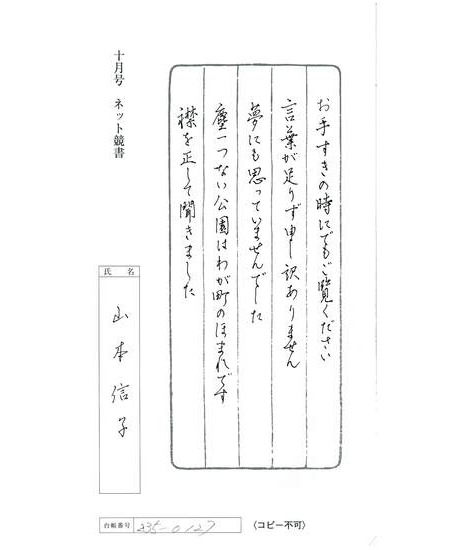 お手すきの時にでもご覧ください
言葉が足りず申し訳ありません
夢にも思っていませんでした
塵一つない公園はわが町のほまれです
襟を正して聞きました
十月号 ネット競書
氏名
山本信子
台帳番号 235-0127
〈コピー不可〉